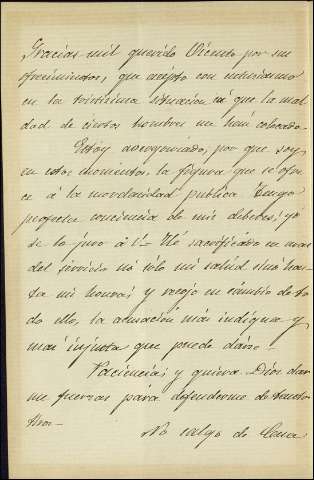 Gracias mil querido Vicente por sus
ofrecimientos, que acepto con entusiasmo
en la tristisima situacion á que la mal
dad de ciertos hombres me han colocado.
Estoy avergonzado, por que soy
en estos momentos, la figura que se ofre
ce á la mordacidad publica. Tengo
perfecta conciencia de mis deberes; yo
se lo juro á V. Hé sacrificado en aras
del servicio no solo mi salud sino has-
ta mi honra; y recojo en cambio de to
do ello, la acusación más indigna y
mas injusta que puede darse.
Paciencia; y quiera Dios dar
me fuerzas para defenderme de
tros—
No salgo de Casa